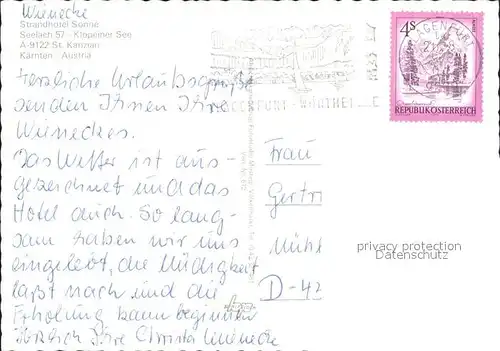 Wienecke
Strandhotel Sonne
Seelach 57 - Klopeiner See
A-9122 St. Kanzian
Kärnten Austria
Herzliche Urlaubsgrüße
senden Ihnen Ihre
Wieneckes.
Das Wetter ist aus-
gezeichnet und das
Hotel auch. So lang-
sam haben wir uns
eingelebt, die Müdigkeit
läßt nach und die
Erholung kann beginnen
Herzlich Ihre Christa Wienecke
4S
REPUBLIK ÖSTERREICH
AGENFURT
Frau
Gertr
Mühl
D-42
privacy protection
Datenschutz